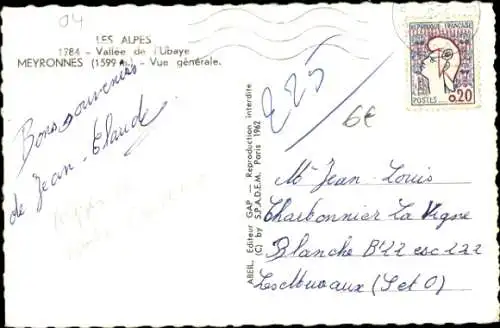 04
LES ALPES
1784 - Vallée de l'Ubaye
MEYRONNES (1599 m.) - Vue générale.
Bons souvenirs
de Jean-Claude
225
6€
POSTES 0,20
ABEIL, Editeur GAP - Reproduction interdite
(C) by S.P.A.D.E.M. Paris 1962
Mr Jean-Louis
Charbonnier La Vigne
Blanche B22 esc 122
Les Mureaux (S et O)